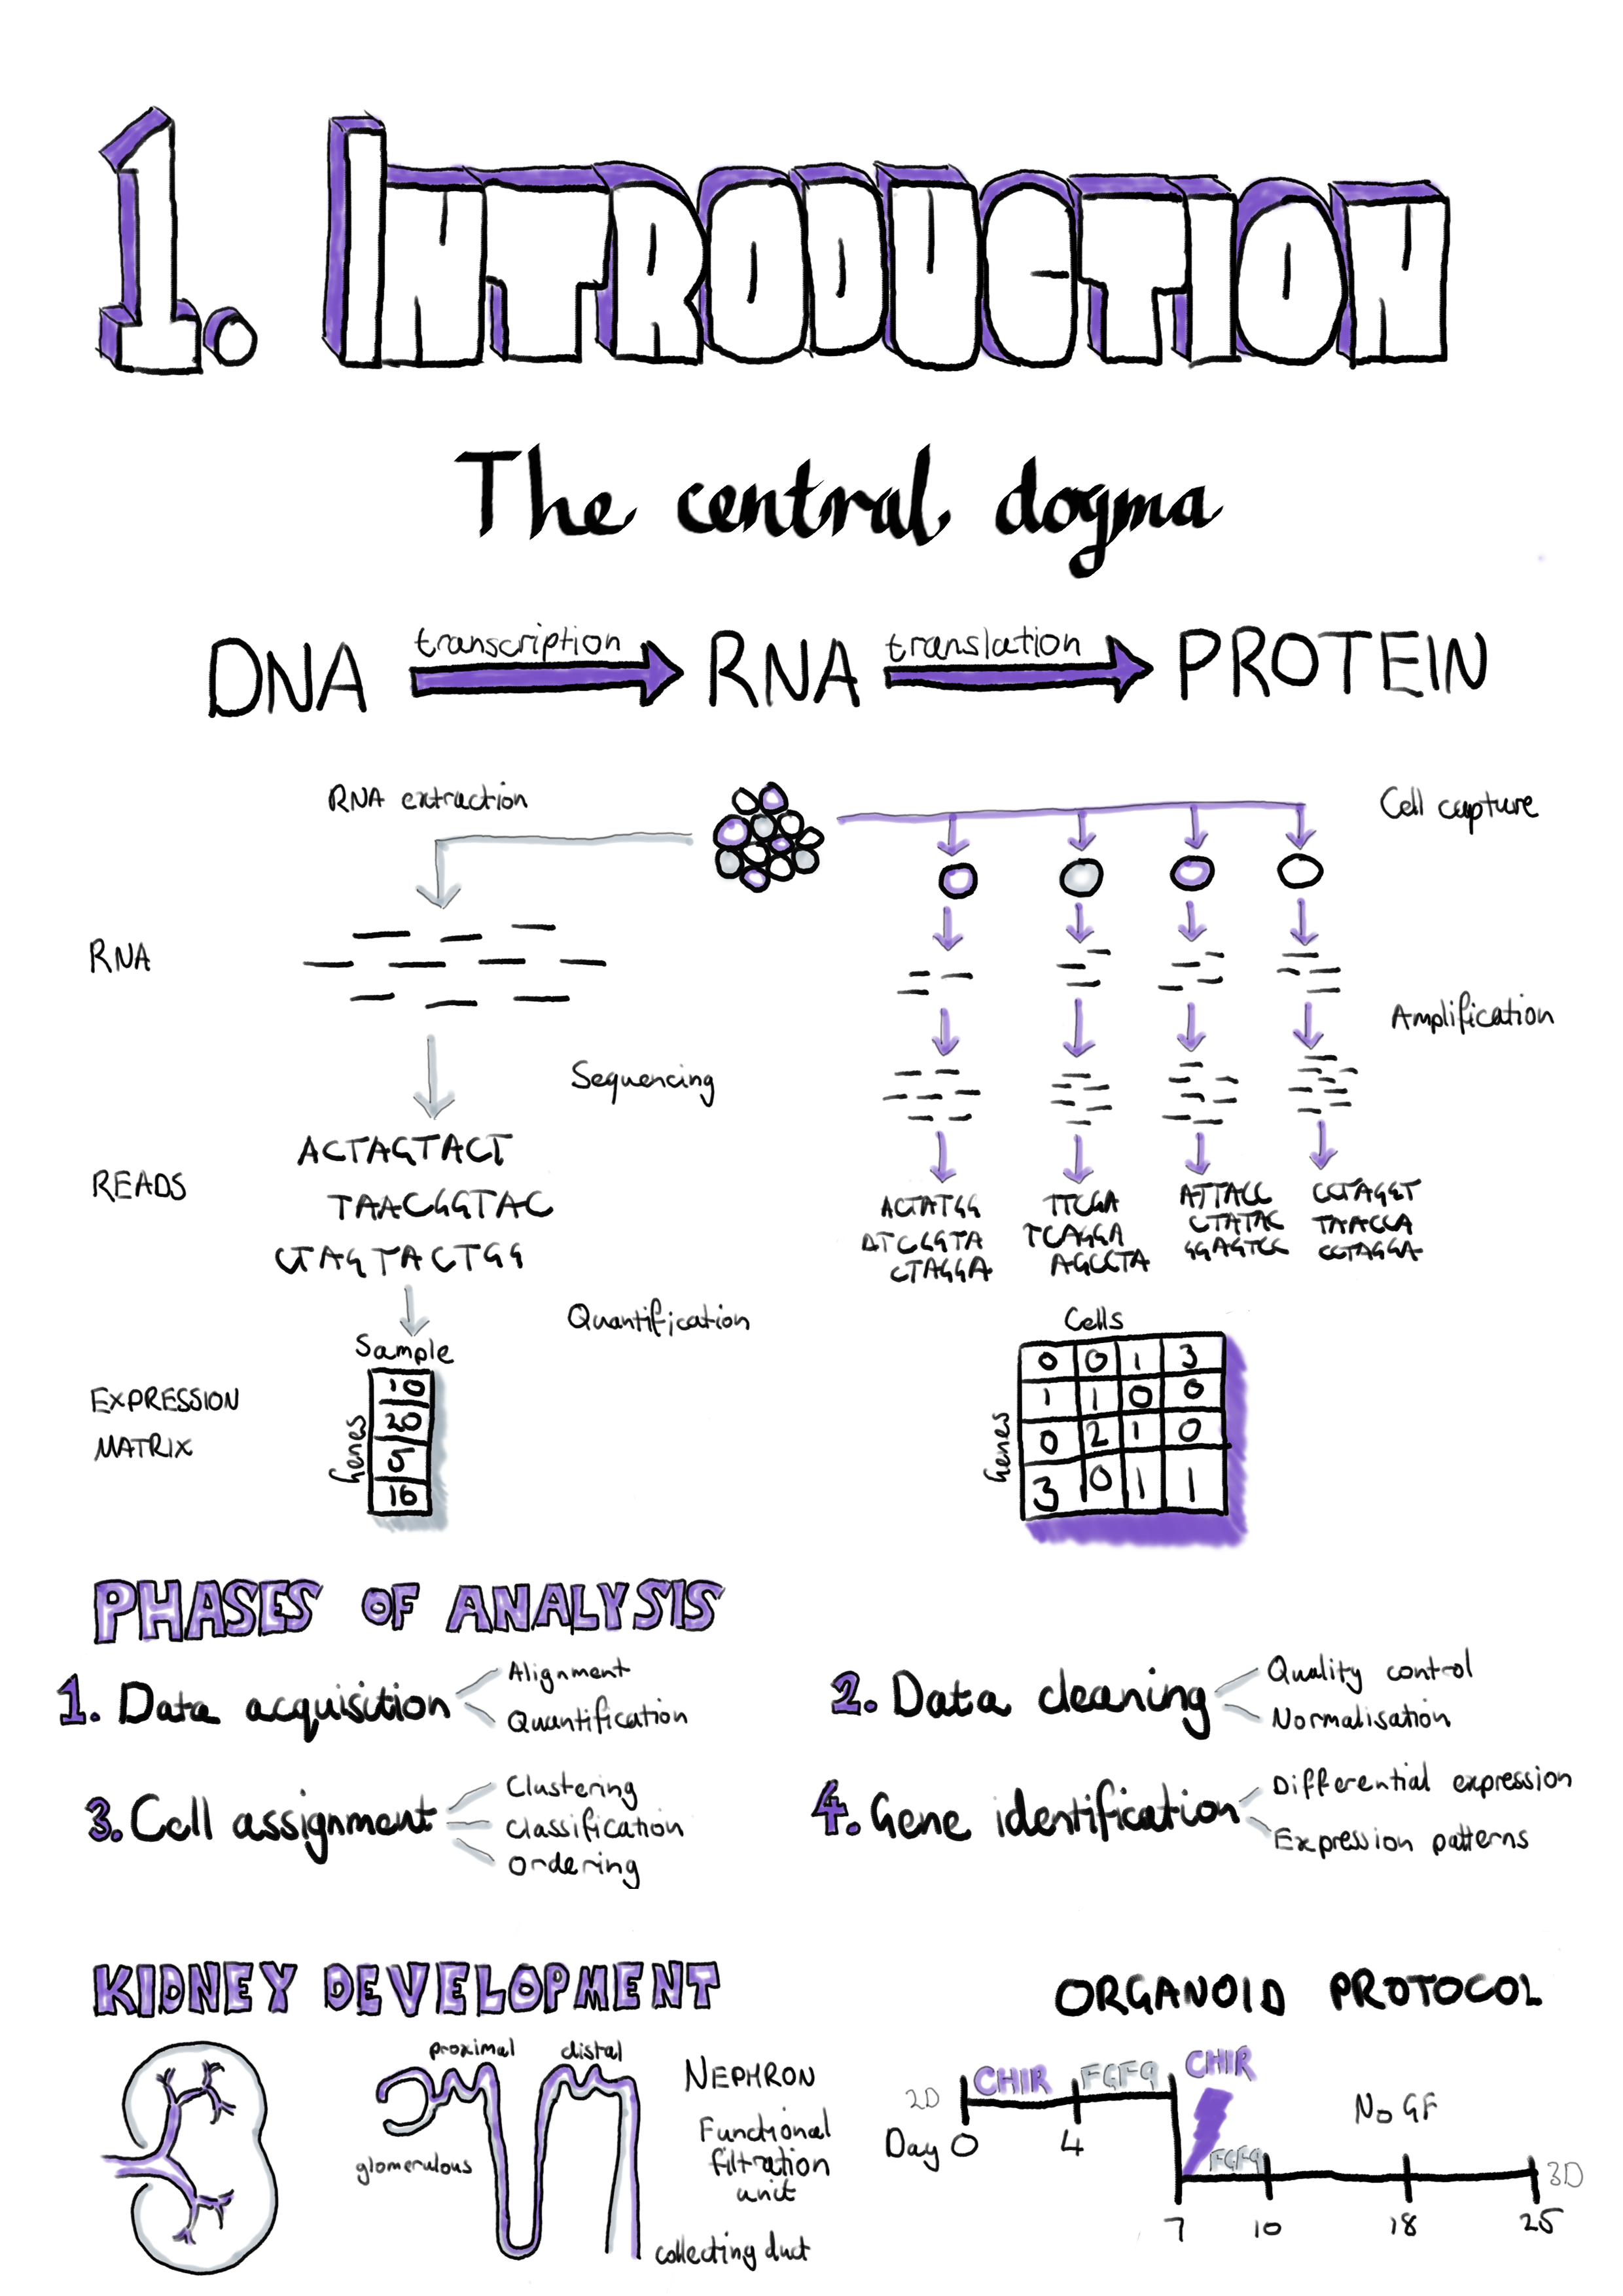 1. INTRODUCTION
The central dogma
DNA transcription RNA translation PROTEIN
RNA extraction
Cell capture
RNA
Amplification
Sequencing
READS
ACTAGTACT
TAACGGTAC
CTAGTACTGG
ACTATGG
ATCGGTA
CTAGGA
TTCGA
TCAGGA
AGCCTA
ATTACC
CTATAC
GGAGTCC
CCTAGGT
TAACCA
CCTAGGA
Quantification
EXPRESSION
MATRIX
Sample
Genes
10
20
5
16
Cells
Genes
0 0 1 3
1 1 0 0
0 2 1 0
3 0 1 1
PHASES OF ANALYSIS
1. Data acquisition
Alignment
Quantification
2. Data cleaning
Quality control
Normalisation
3. Cell assignment
Clustering
Classification
Ordering
4. Gene identification
Differential expression
Expression patterns
KIDNEY DEVELOPMENT
proximal
distal
glomerulous
NEPHRON
Functional
filtration
unit
collecting duct
ORGANOID PROTOCOL
2D CHIR FGF9 CHIR
No GF
Day 0 4
FGF9
3D
7 10 18 25